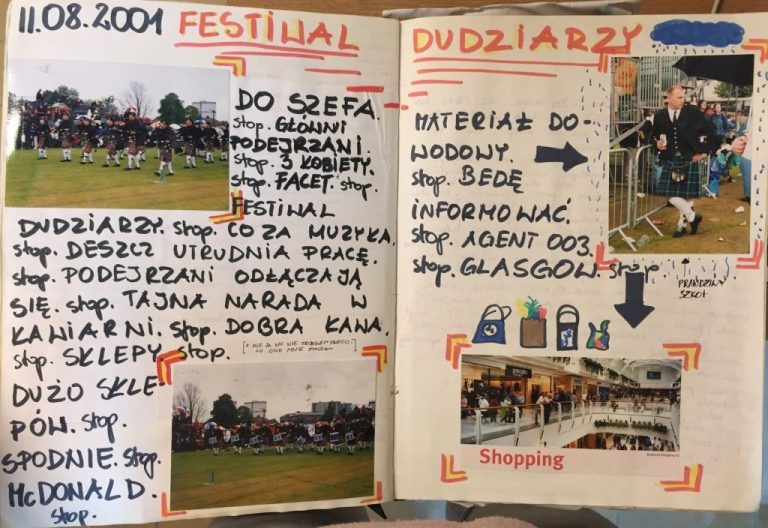 11.08.2001 FESTIWAL
DO SZEFA.
stop. GŁÓWNI
PODEJRZANI.
stop. 3 KOBIETY.
stop. FACET. stop.
FESTIWAL
DUDZIARZY. stop. CO ZA MUZYKA.
stop. DESZCZ UTRUDNIA PRACĘ.
stop. PODEJRZANI ODŁĄCZAJĄ
SIĘ. stop. TAJNA NARADA W
KAWIARNI. stop. DOBRA KAWA.
stop. SKLEPY stop.
DUŻO SKLE-
PÓW. stop.
SPODNIE. stop.
McDONALD.
stop.
DUDZIARZY
MATERIAŁ DO-
WODOWY.
stop. BĘDĘ
INFORMOWAĆ.
stop. AGENT 003.
stop. GLASGOW. stop.
PRAWDZIWY
SZKOT
Shopping